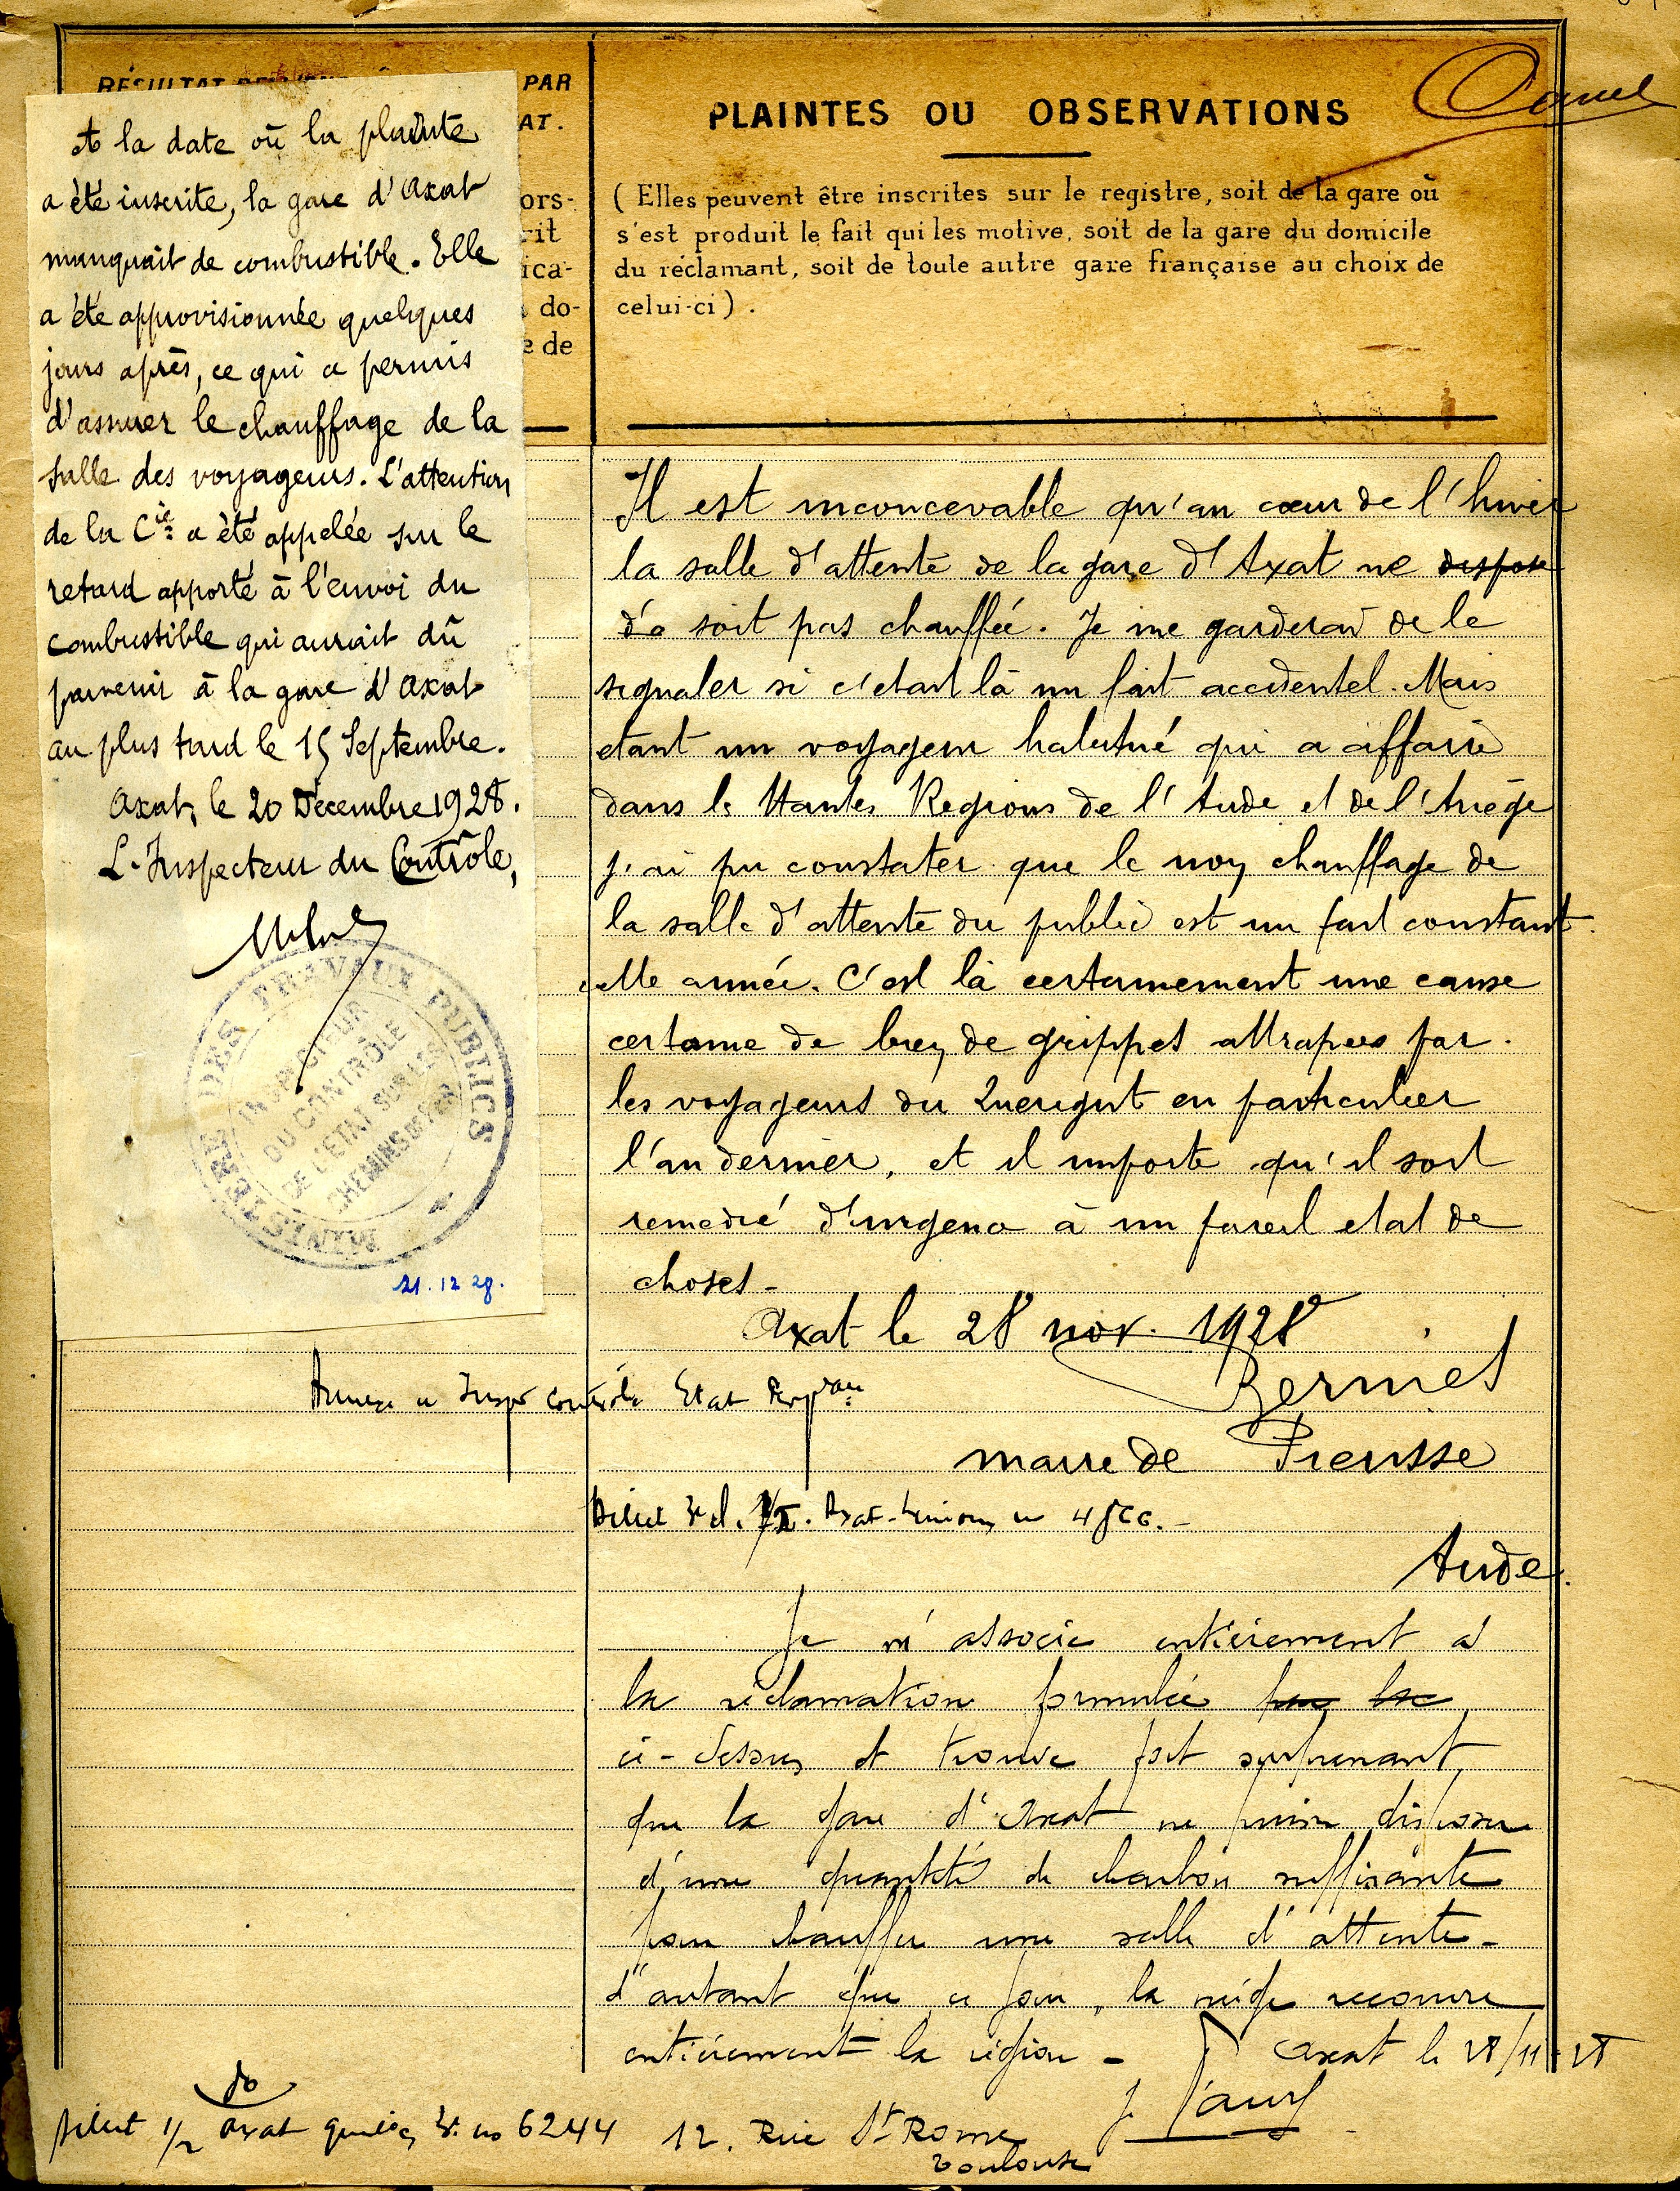 RÉSULTAT
PAR
AT.
ors-
rit
ica-
do-
e de
A la date où la plainte
a été inscrite, la gare d'Axat
manquait de combustible. Elle
a été approvisionnée quelques
jours après, ce qui a permis
d'assurer le chauffage de la
salle des voyageurs. L'attention
de la Cie a été appelée sur le
retard apporté à l'envoi du
combustible qui aurait dû
parvenir à la gare d'Axat
au plus tard le 15 Septembre.
Axat, le 20 Décembre 1928.
L'Inspecteur du Contrôle,
MINISTÈRE DES TRAVAUX PUBLICS
INSPECTEUR
DU CONTRÔLE
DE L'ÉTAT SUR LES
CHEMINS DE FER
21.12 28.
PLAINTES OU OBSERVATIONS
(Elles peuvent être inscrites sur le registre, soit de la gare où
s'est produit le fait qui les motive, soit de la gare du domicile
du réclamant, soit de toute autre gare française au choix de
celui-ci).
Il est inconcevable qu'au cœur de l'hiver
la salle d'attente de la gare d'Axat ne dispose
soit pas chauffée. Je me garderai de le
signaler si c'etait là un fait accidentel. Mais
etant un voyageur habitué qui a affaire
dans les Hautes Regions de l'Aude et de l'Ariège
j'ai pu constater que le non chauffage de
la salle d'attente du public est un fait constant
cette année. C'est là certainement une cause
certaine de bien de grippes attrapees par
les voyageurs du Querigut en particulier
l'an dernier, et il importe qu'il soit
remedié d'urgence à un pareil etat de
choses -
Axat le 28 nov. 1928
maire de
Contrôle Etat
Aude.
Je m'associe entièrement à
la réclamation formulée
ci-dessus et trouve fort surprenant
que la gare d'Axat ne puisse disposer
d'une quantité de charbon suffisante
pour chauffer une salle d'attente -
d'autant que ce jour, la neige recouvre
entièrement la région -
Axat le 28/11 28
Billet 1/2 Axat 6244
12, Rue St Rome
Toulouse